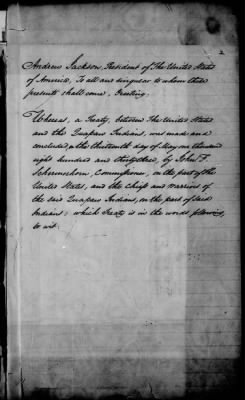 Andrew Jackson, President of The United States
of America, To all and singular to whom these
presents shall come, Greeting:
Whereas, a Treaty, between The United States
and the Quapaw Indians, was made and
concluded, on the thirteenth day of May one thousand
eight hundred and thirty three, by John F.
Schermerhorn, Commissioner, on the part of the
United States, and the Chiefs and warriors of
the said Quapaw Indians, on the part of said
Indians; which Treaty is in the words following,
to wit: